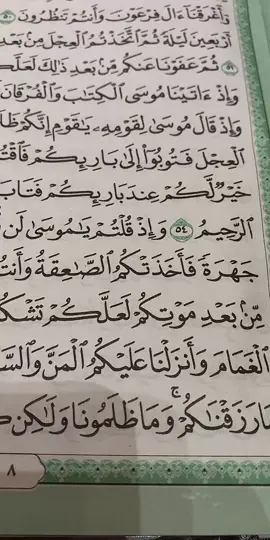 وَأَغْرَقْنَآ ءَالَ فِرْعَوْنَ وَأَنتُمْ تَنظُرُونَ ٥٠
أَرْبَعِينَ لَيْلَةً ثُمَّ ٱتَّخَذْتُمُ ٱلْعِجْلَ مِنۢ بَعْدِ
٥١ ثُمَّ عَفَوْنَا عَنكُم مِّنۢ بَعْدِ ذَٰلِكَ
وَإِذْ ءَاتَيْنَا مُوسَى ٱلْكِتَٰبَ وَٱلْفُرْقَانَ
وَإِذْ قَالَ مُوسَىٰ لِقَوْمِهِۦ يَٰقَوْمِ إِنَّكُمْ
ٱلْعِجْلَ فَتُوبُوٓا۟ إِلَىٰ بَارِئِكُمْ
خَيْرٌ لَّكُمْ عِندَ بَارِئِكُمْ فَتَابَ
ٱلرَّحِيمُ ٥٤ وَإِذْ قُلْتُمْ يَٰمُوسَىٰ لَن
جَهْرَةً فَأَخَذَتْكُمُ ٱلصَّٰعِقَةُ
مِّنۢ بَعْدِ مَوْتِكُمْ لَعَلَّكُمْ
ٱلْغَمَامَ وَأَنزَلْنَا عَلَيْكُمُ ٱلْمَنَّ
مَا رَزَقْنَٰكُمْ ۚ وَمَا ظَلَمُونَا وَلَٰكِن
٨